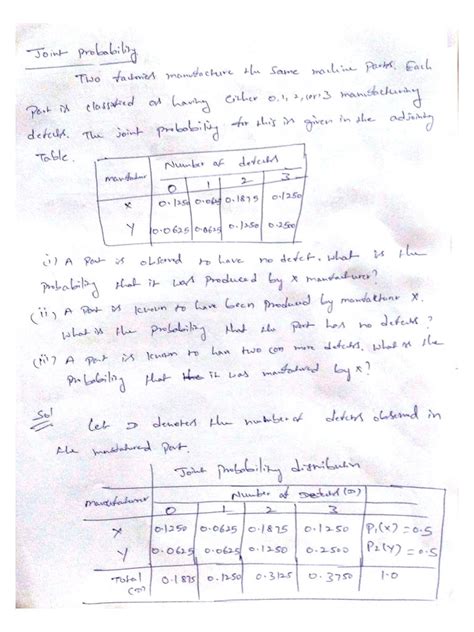 Joint Probability
Two factories manufacture the same machine Parts. Each
Part is classified as having either 0, 1, 2, or 3 manufacturing
defects. The joint probability for this is given in the adjoing
Table.
manufaturer Number of defects
0 1 2 3
X 0.1250 0.0625 0.1875 0.1250
Y 0.0625 0.0625 0.1250 0.2500
(i) A Part is observed to have no defect. what is the
Probability that it was produced by X manufacturer?
(ii) A Part is known to have been Produced by manufacturer X.
What is the Probability that the Part has no defects?
(iii) A Part is known to have two (or) more defects. What is the
Probability that it was manufatured by X?
Sol
Let D denotes the number of defects observed in
the manufatured Part.
Joint Probability distribution
manufaturer Number of Defects (D)
0 1 2 3
X 0.1250 0.0625 0.1875 0.1250 P1(X) = 0.5
Y 0.0625 0.0625 0.1250 0.2500 P2(Y) = 0.5
Total (D) 0.1875 0.1250 0.3125 0.3750 1.0